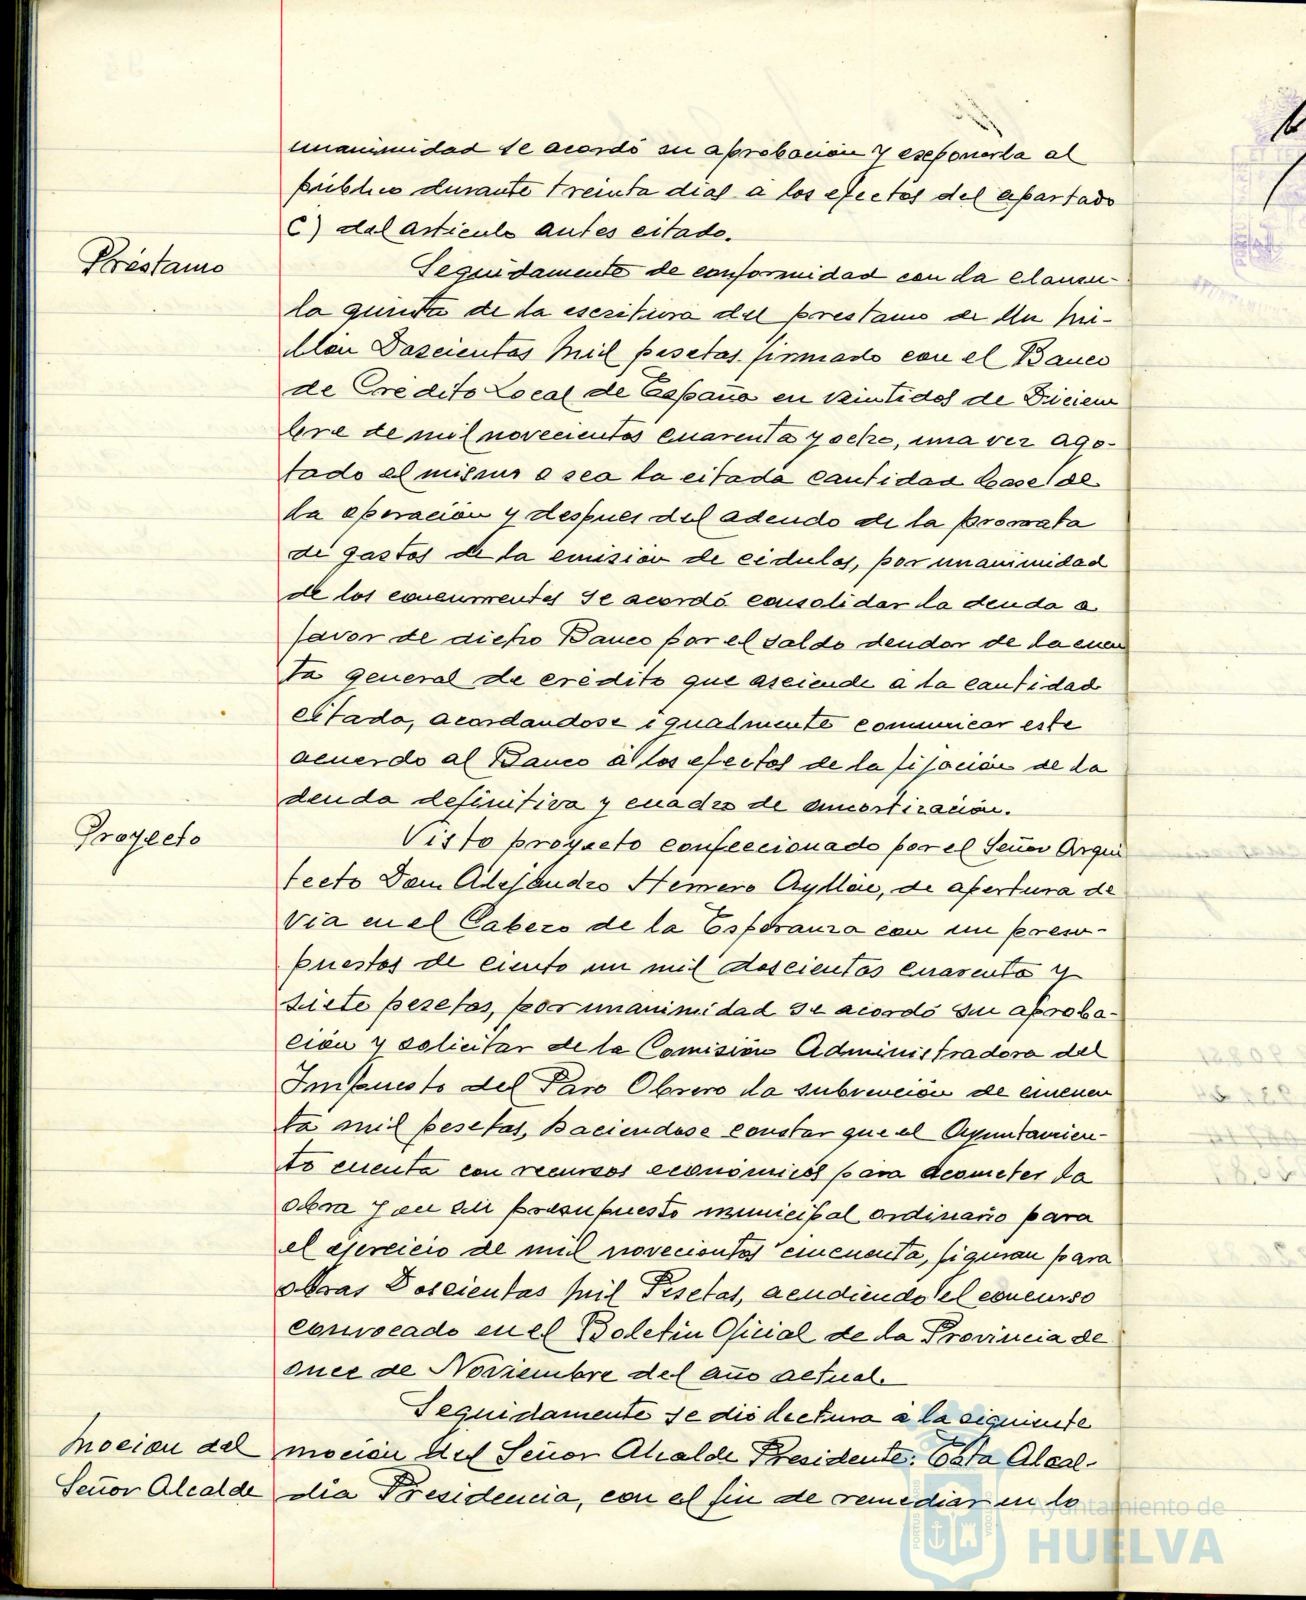 unanimidad se acordó su aprobación y exponerla al
público durante treinta dias a los efectos del apartado
C) del articulo antes citado.
Préstamo
Seguidamente de conformidad con la clausu-
la quinta de la escritura del prestamo de Un Mi-
llón Doscientas Mil pesetas firmado con el Banco
de Crédito Local de España en veintidos de Diciem
bre de mil novecientos cuarenta y ocho, una vez ago-
tado el mismo o sea la citada cantidad base de
la operación y despues del adeudo de la prorrata
de gastos de la emisión de cédulas, por unanimidad
de los concurrentes se acordó consolidar la deuda a
favor de dicho Banco por el saldo deudor de la cuen
ta general de crédito que asciende a la cantidad
citada, acordandose igualmente comunicar este
acuerdo al Banco a los efectos de la fijación de la
deuda definitiva y cuadro de amortización.
Proyecto
Visto proyecto confeccionado por el Señor Arqui
tecto Don Alejandro Herrero Ayllón, de apertura de
via en el Cabezo de la Esperanza con un presu-
puestos de ciento un mil doscientas cuarenta y
siete pesetas, por unanimidad se acordó su aproba-
ción y solicitar de la Comisión Administradora del
Impuesto del Paro Obrero la subvención de cincuen
ta mil pesetas, haciendose constar que el Ayuntamien-
to cuenta con recursos económicos para acometer la
obra y en su presupuesto municipal ordinario para
el ejercicio de mil novecientos cincuenta, figuran para
obras Doscientas mil Pesetas, acudiendo al concurso
convocado en el Boletin Oficial de la Provincia de
once de Noviembre del año actual.
Seguidamente se dió lectura a la siguiente
Mocion del
Señor Alcalde
moción del Señor Alcalde Presidente: Esta Alcal-
dia Presidencia, con el fin de remediar en lo
Ayuntamiento de
HUELVA